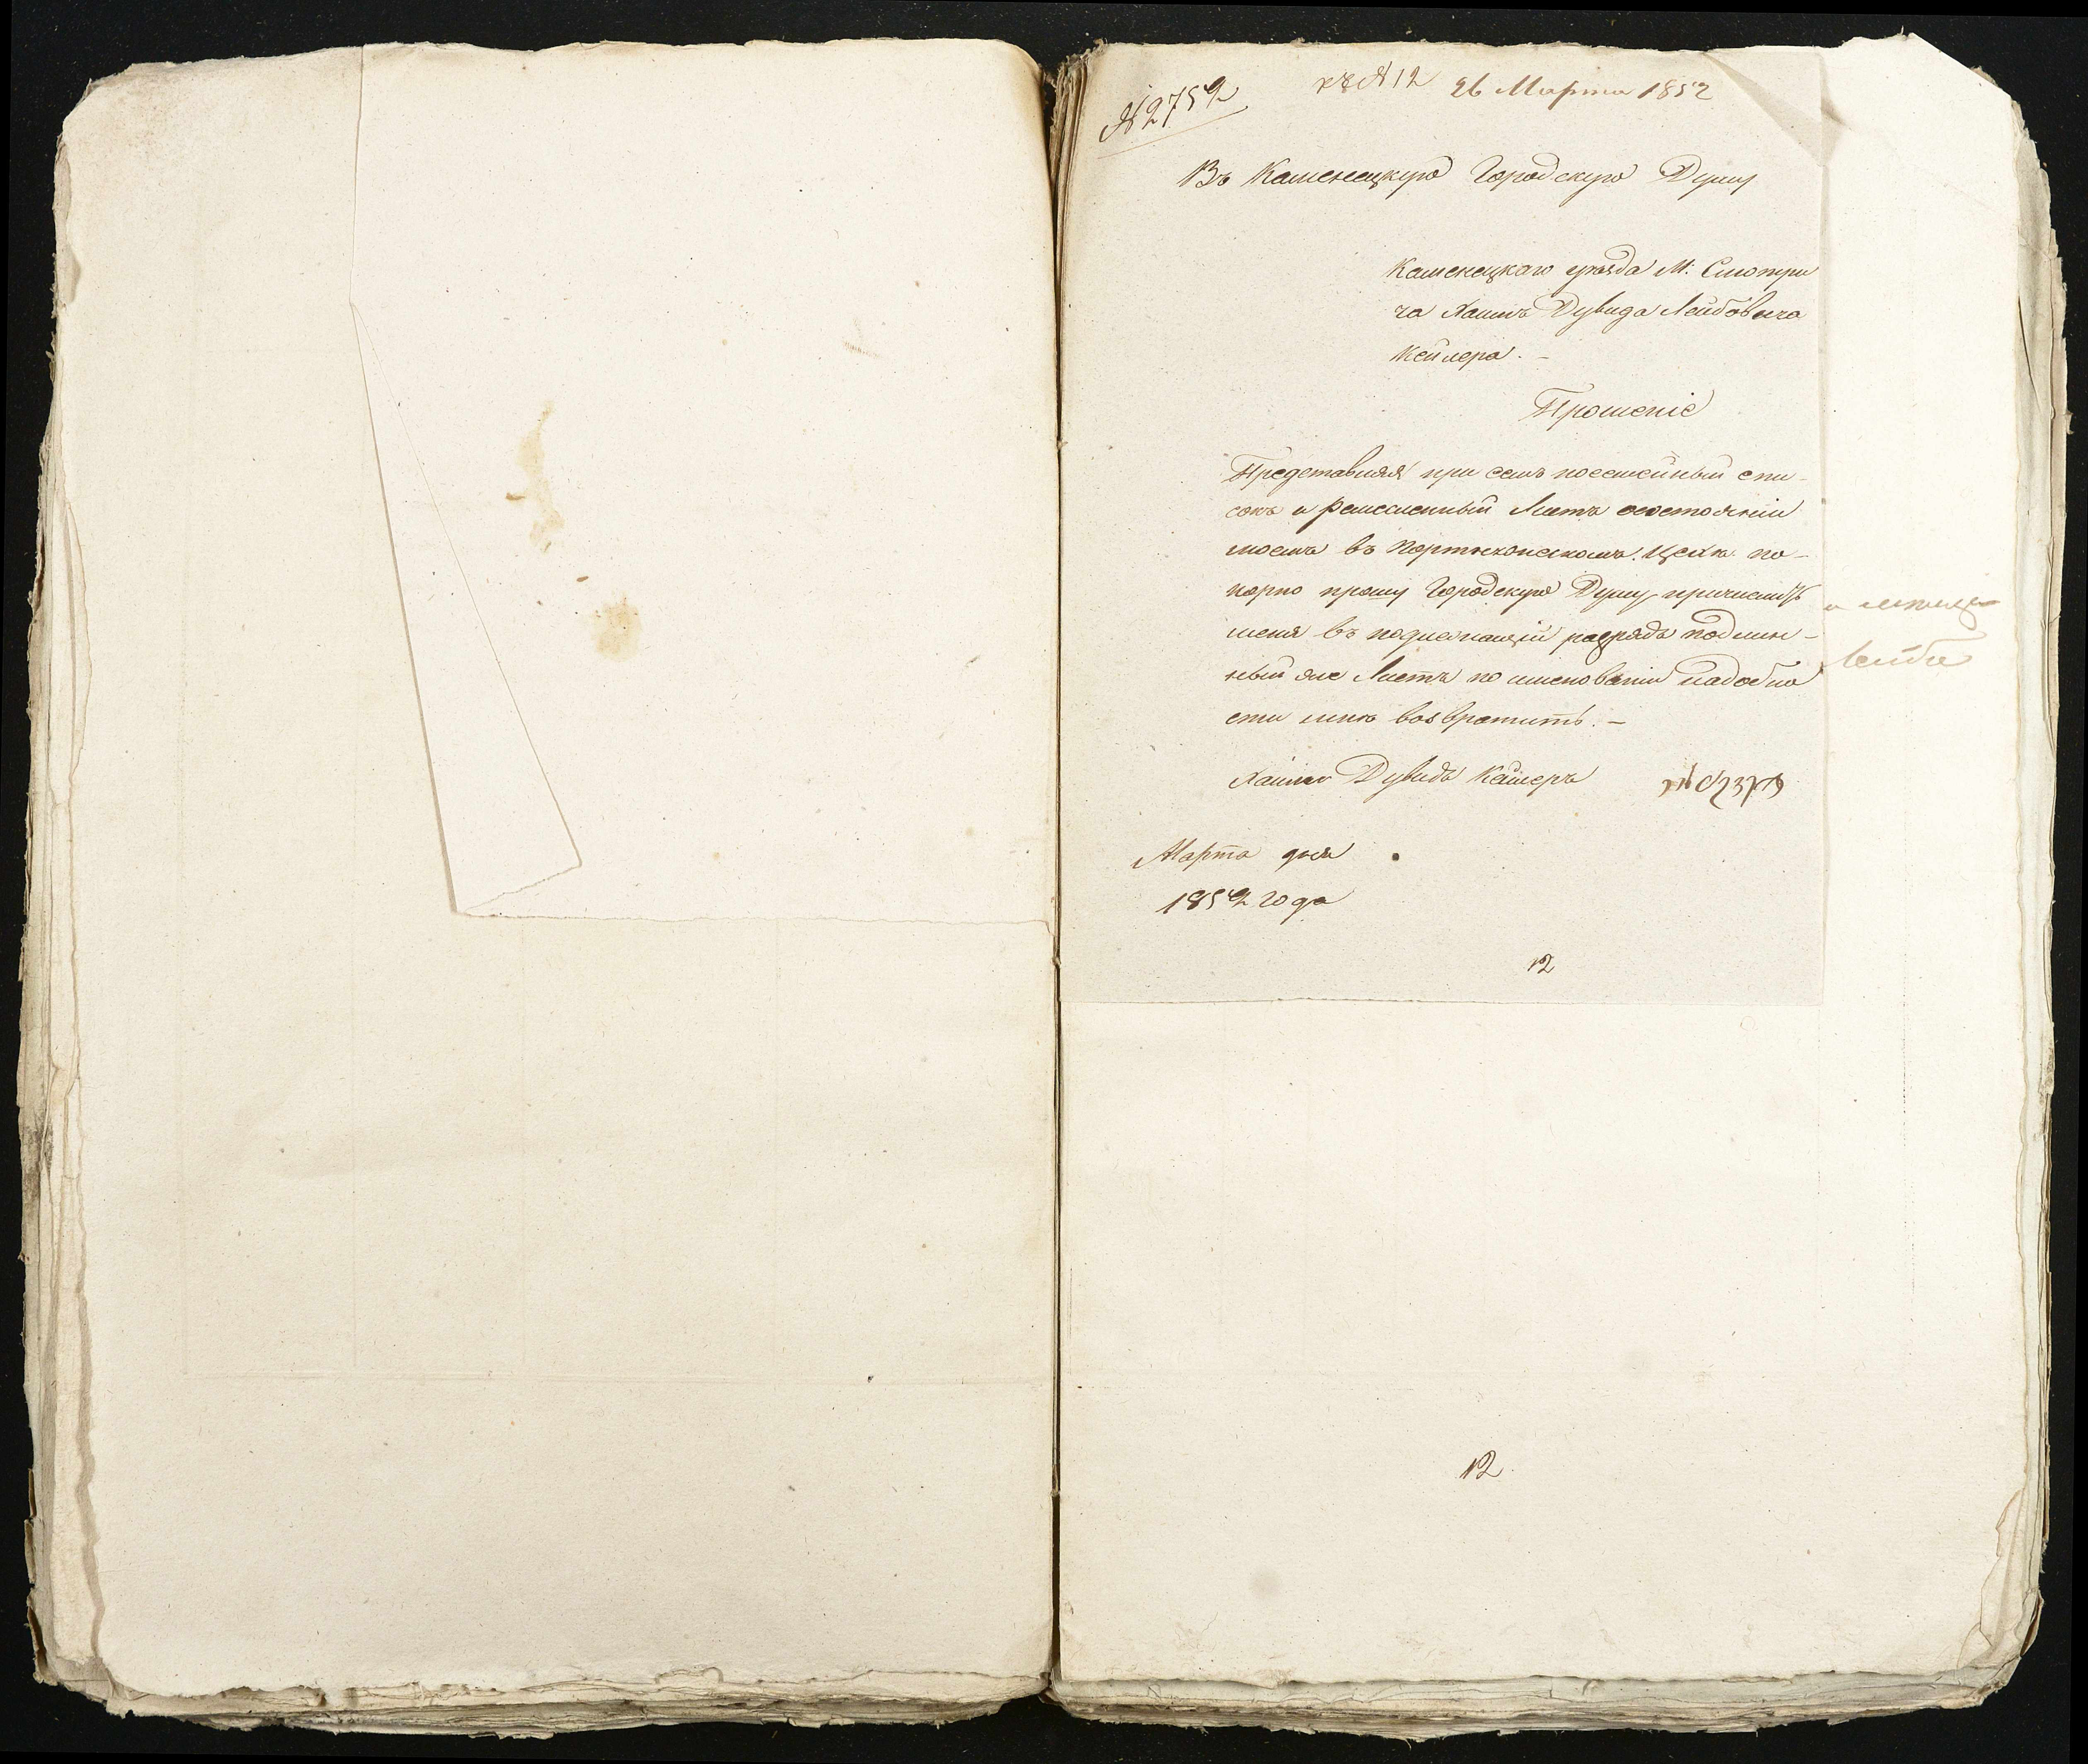 № 2752
къ № 12
26 Марта 1852
Въ Каменецкую Городскую Думу
Каменецкаго уѣзда М: Смотри
ча Хаима Дувида Лейбовича
Кейлера. –
Прошеніе
Представляя при семъ посемейный спи-
сокъ и ремесленный Листъ о состояніи
моемъ въ Портняжескомъ Цехѣ по-
корно прошу Городскую Думу причислить
меня въ подлежащій разрядъ подлин-
ный же Листъ по минованіи надобно
сти мнѣ возвратить. –
Хаимъ Дувидъ Кейлеръ
Марта дня
1852 года
12
Лейбы
12